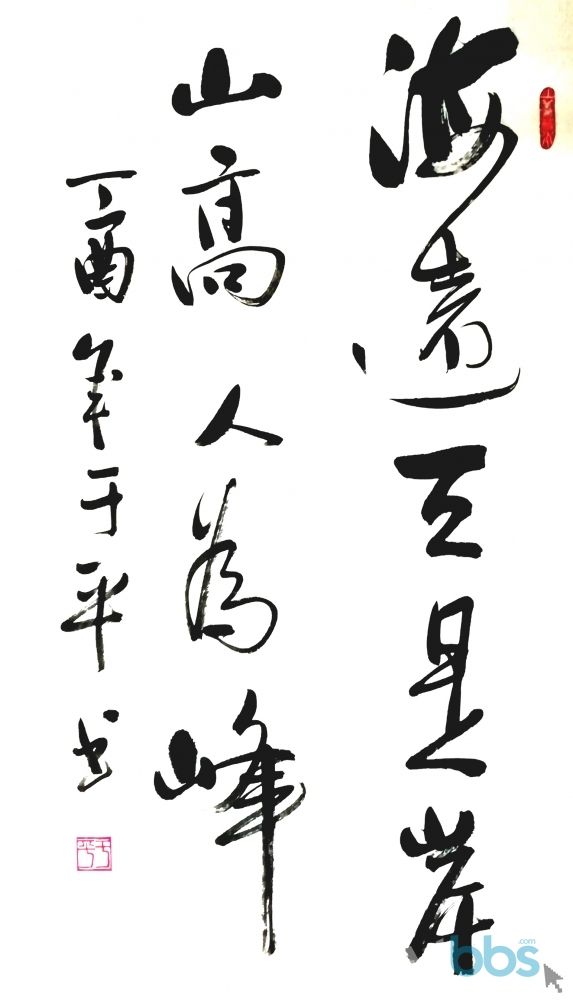 海遠天是岸
山高人為峰
丁酉年于平书
bbs
.com